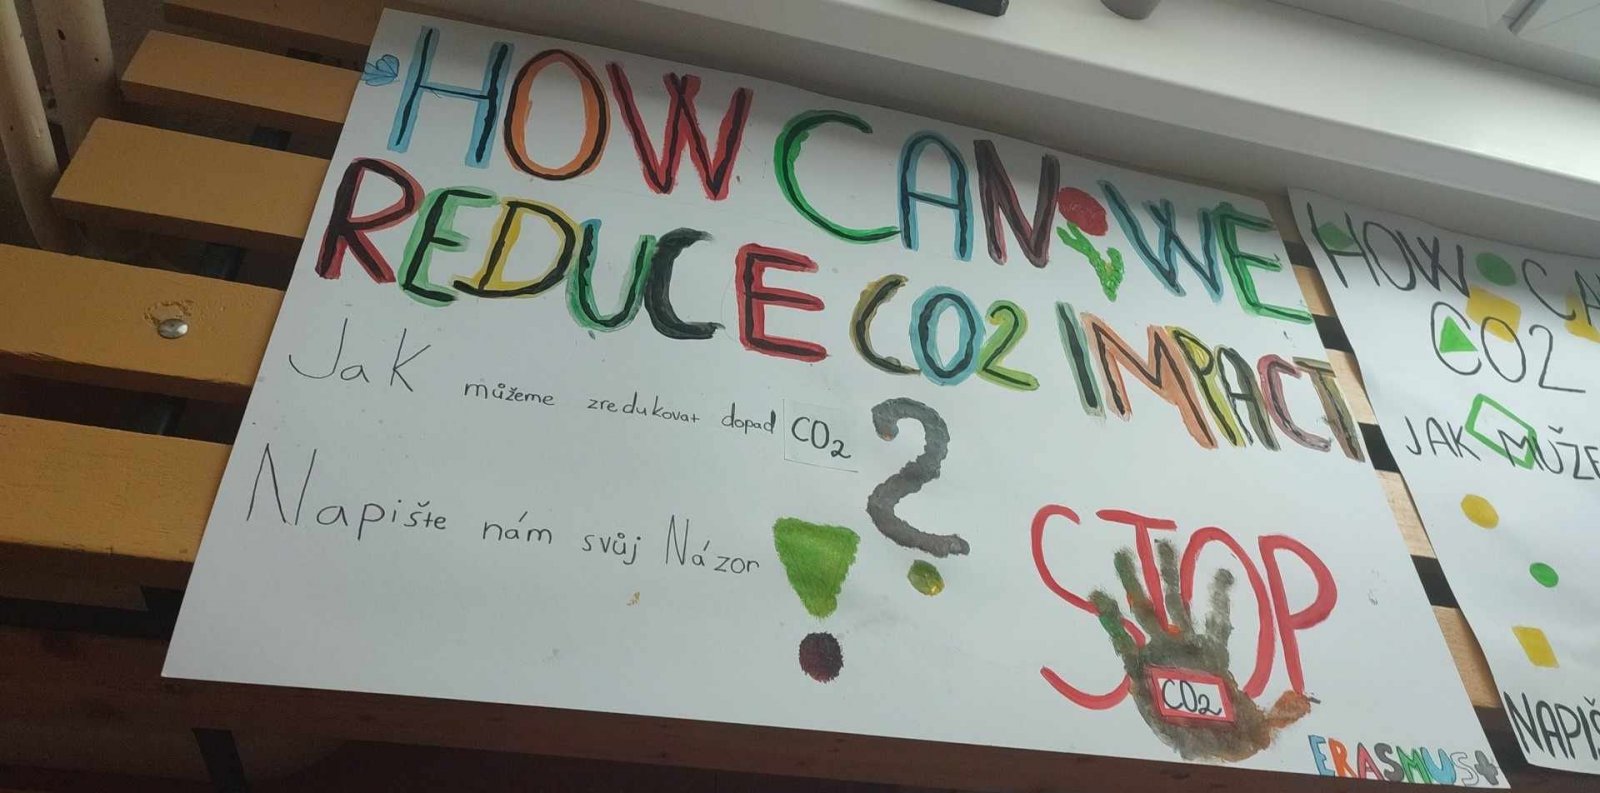 HOW CAN WE
REDUCE CO2 IMPACT
Jak můžeme zredukovat dopad CO2?
Napište nám svůj Názor!
STOP
CO2
ERASMUS+
HOW CA
CO2
JAK MŮŽE
NAPIŠ